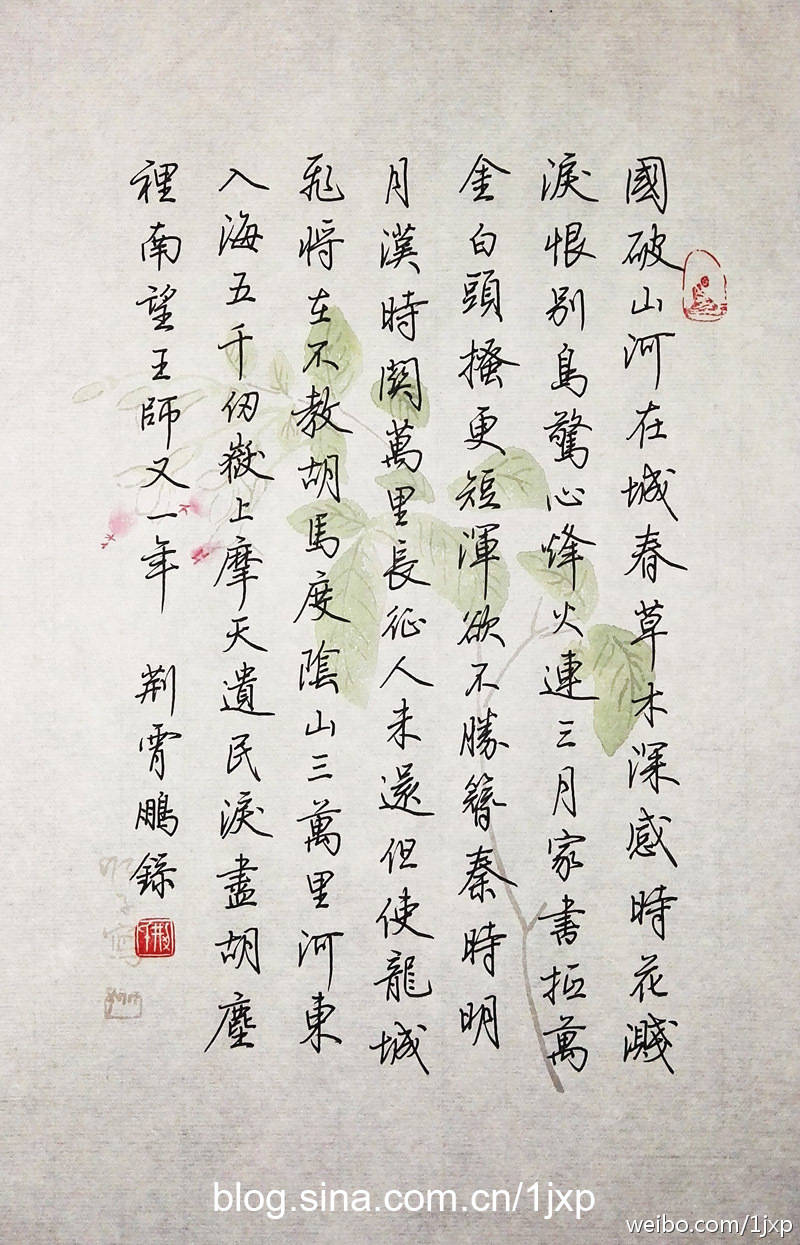 國破山河在城春草木深感時花濺
淚恨別鳥驚心烽火連三月家書抵萬
金白頭搔更短渾欲不勝簪秦時明
月漢時関萬里長征人未還但使龍城
飛將在不教胡馬度陰山三萬里河東
入海五千仞嶽上摩天遺民淚盡胡塵
裡南望王師又一年 荆霄鵬錄
blog.sina.com.cn/1jxp
weibo.com/1jxp